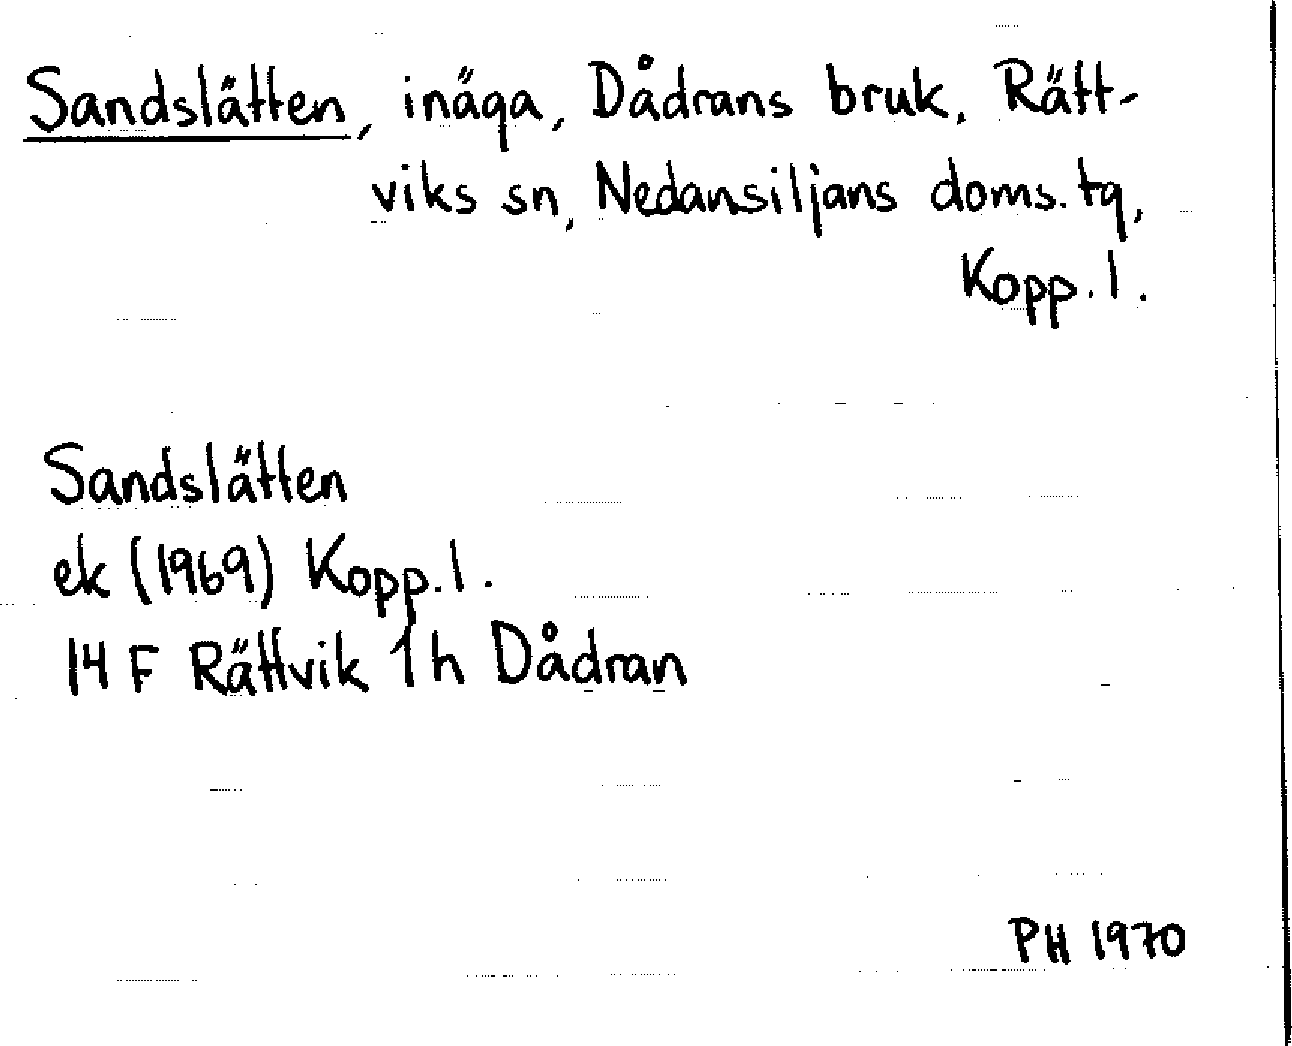 Sandslätten, inäga, Dådrans bruk, Rätt-
viks sn, Nedansiljans doms. tg,
Kopp. l.
Sandslätten
ek (1969) Kopp. l.
14 F Rättvik 1 h Dådran
PH 1970